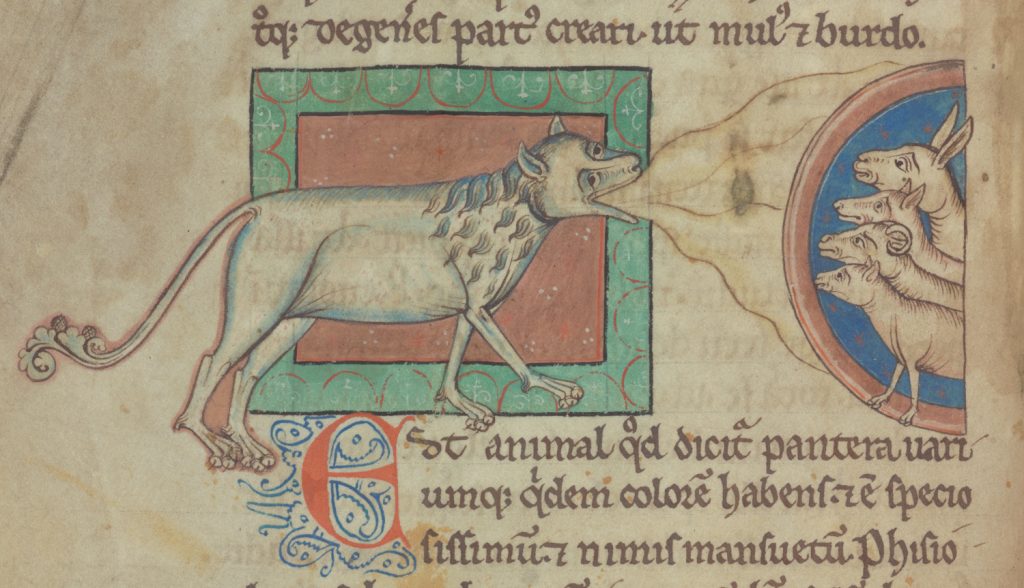 t̄q; degen̄es partꝰ creari. ut mulꝰ ⁊ burdo.
Est animal qd̄ dicit᷑ pantera uari
umq; qͥdem colorē habens. ⁊ ē specio
sissimū. ⁊ nimis mansuetū. Phisio